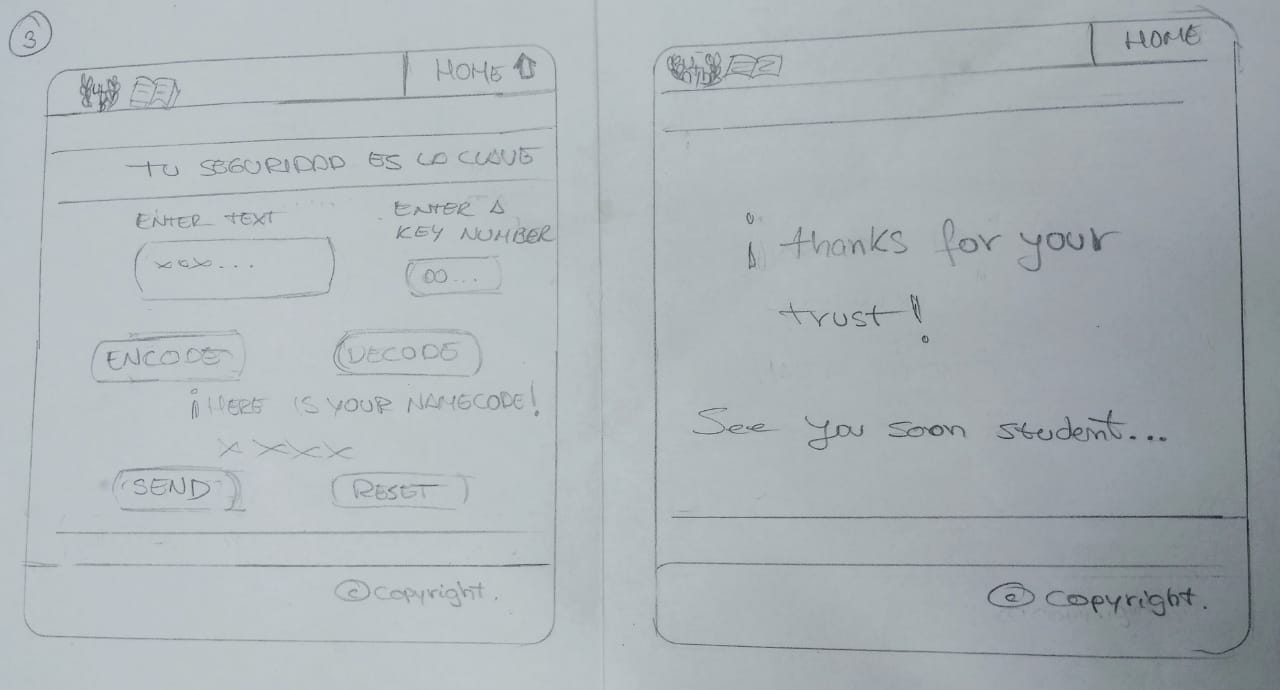 3
HOME
TU SEGURIDAD ES LA CLAVE
ENTER TEXT
ENTER A
KEY NUMBER
xox...
00...
ENCODE
DECODE
¡HERE IS YOUR NAMECODE!
XXXX
SEND
RESET
© copyright.
HOME
¡ thanks for your
trust!
See you soon student...
© copyright.